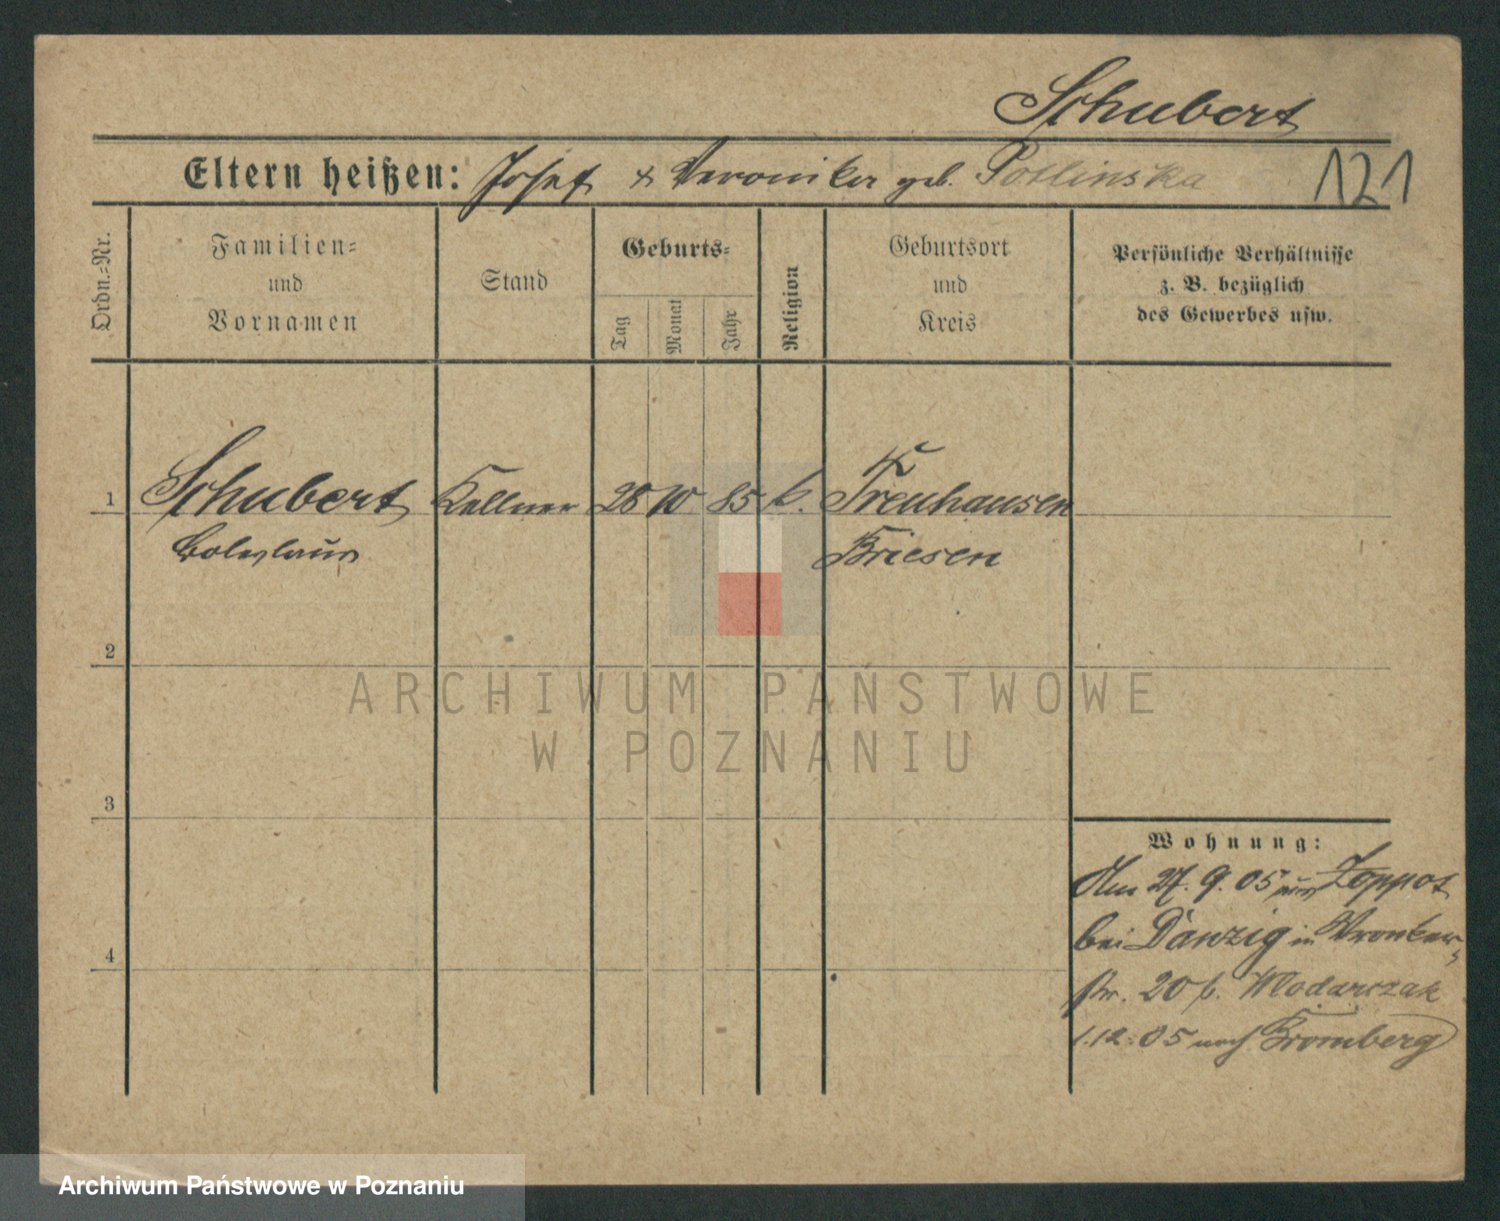 Schubert
Eltern heißen: Josef & Veronika geb. Potlinska
121
Ordn.-Nr.
Familien-
und
Vornamen
Stand
Geburts-
Tag
Monat
Jahr
Religion
Geburtsort
und
Kreis
Persönliche Verhältnisse
z. B. bezüglich
des Gewerbes usw.
1 Schubert Kellner 28 10 85 k. Treuhausen
Boleslaus Briesen
2
ARCHIWUM PAŃSTWOWE
W POZNANIU
3
Wohnung:
Am 27. 9. 05 aus Zoppot
bei Danzig in Wronker-
4
str. 20 b. Wlodarczak
1.12.05 nach Bromberg
Archiwum Państwowe w Poznaniu